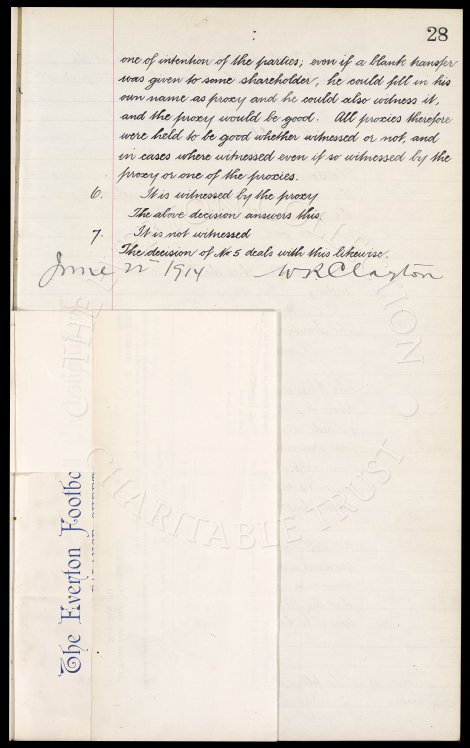 28
one of intention of the parties; even if a blank transfer
was given to some shareholder, he could fill in his
own name as proxy and he could also witness it,
and the proxy would be good. All proxies therefore
were held to be good whether witnessed or not, and
in cases where witnessed even if so witnessed by the
proxy or one of the proxies.
6. It is witnessed by the proxy
The above decision answers this.
7. It is not witnessed
The decision of No 5 deals with this likewise.
June 22 1914 WRClayton
The Everton Footb
CHARITABLE TRUST